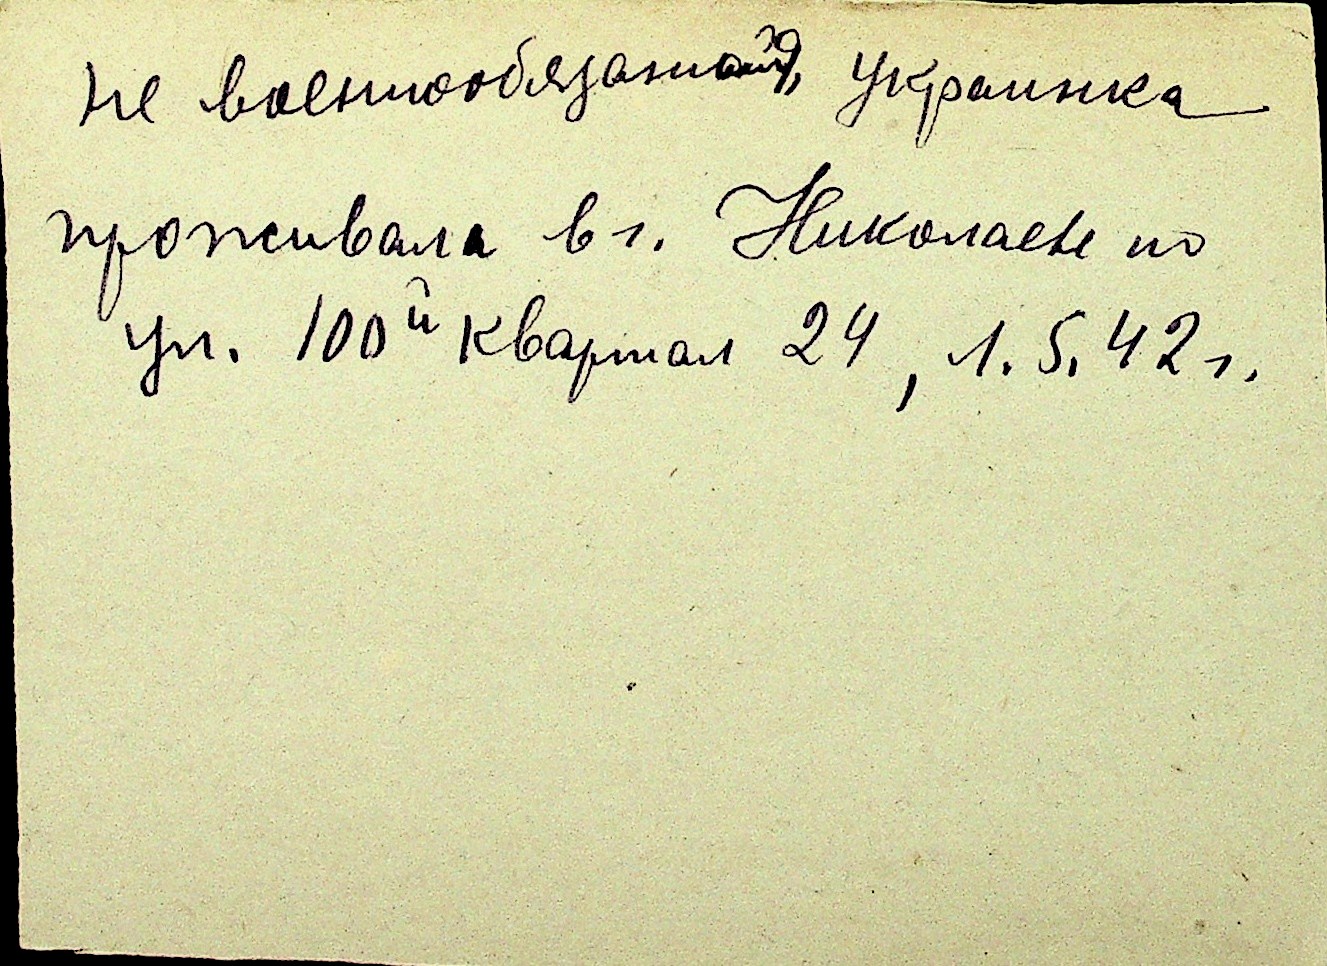 не военнообязаная, украинка
проживала в г. Николаеве по
ул. 100й квартал 24, 1.5.42 г.